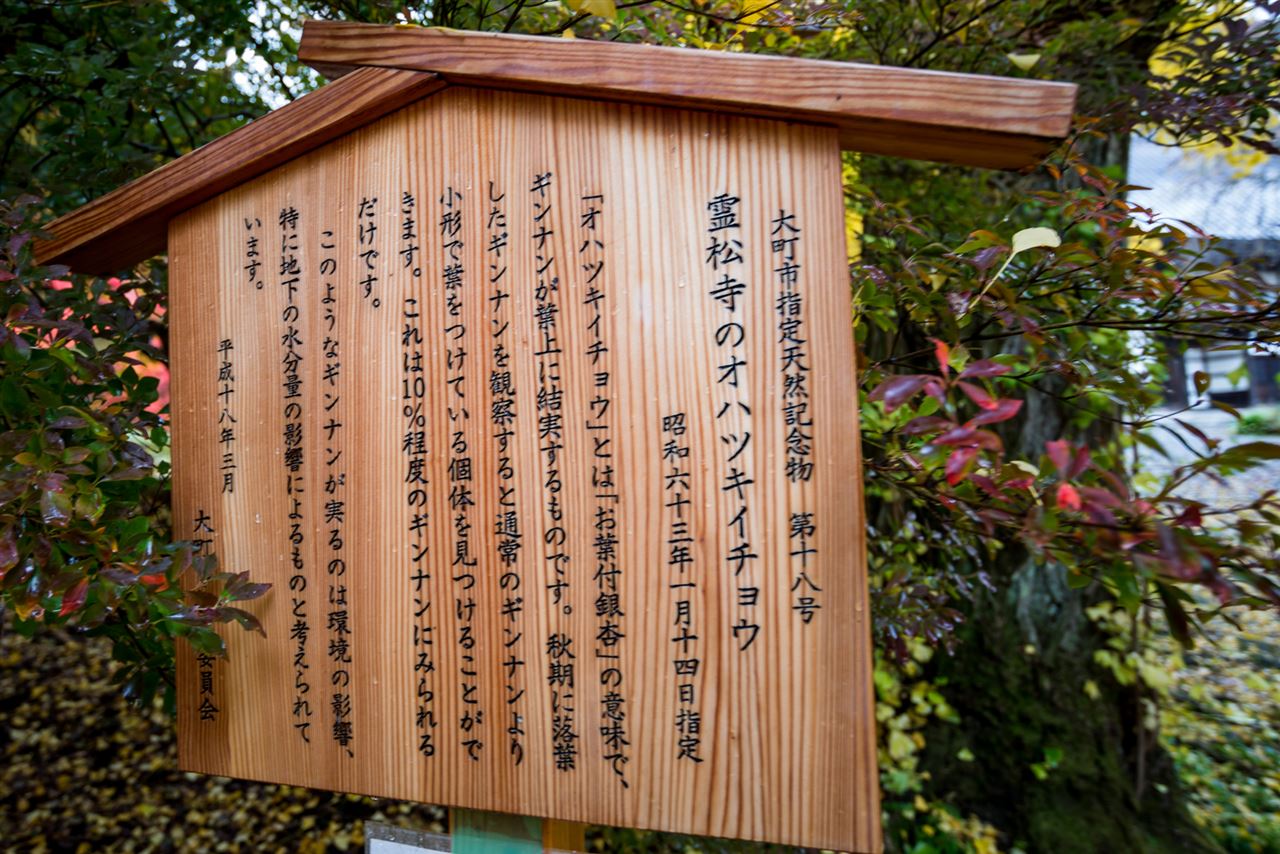 大町市指定天然記念物 第十八号
霊松寺のオハツキイチョウ
昭和六十三年一月十四日指定
「オハツキイチョウ」とは「お葉付銀杏」の意味で、
ギンナンが葉上に結実するものです。秋期に落葉
したギンナンを観察すると通常のギンナンより
小形で葉をつけている個体を見つけることがで
きます。これは10％程度のギンナンにみられる
だけです。
このようなギンナンが実るのは環境の影響、
特に地下の水分量の影響によるものと考えられて
います。
平成十八年三月
大町 委員会